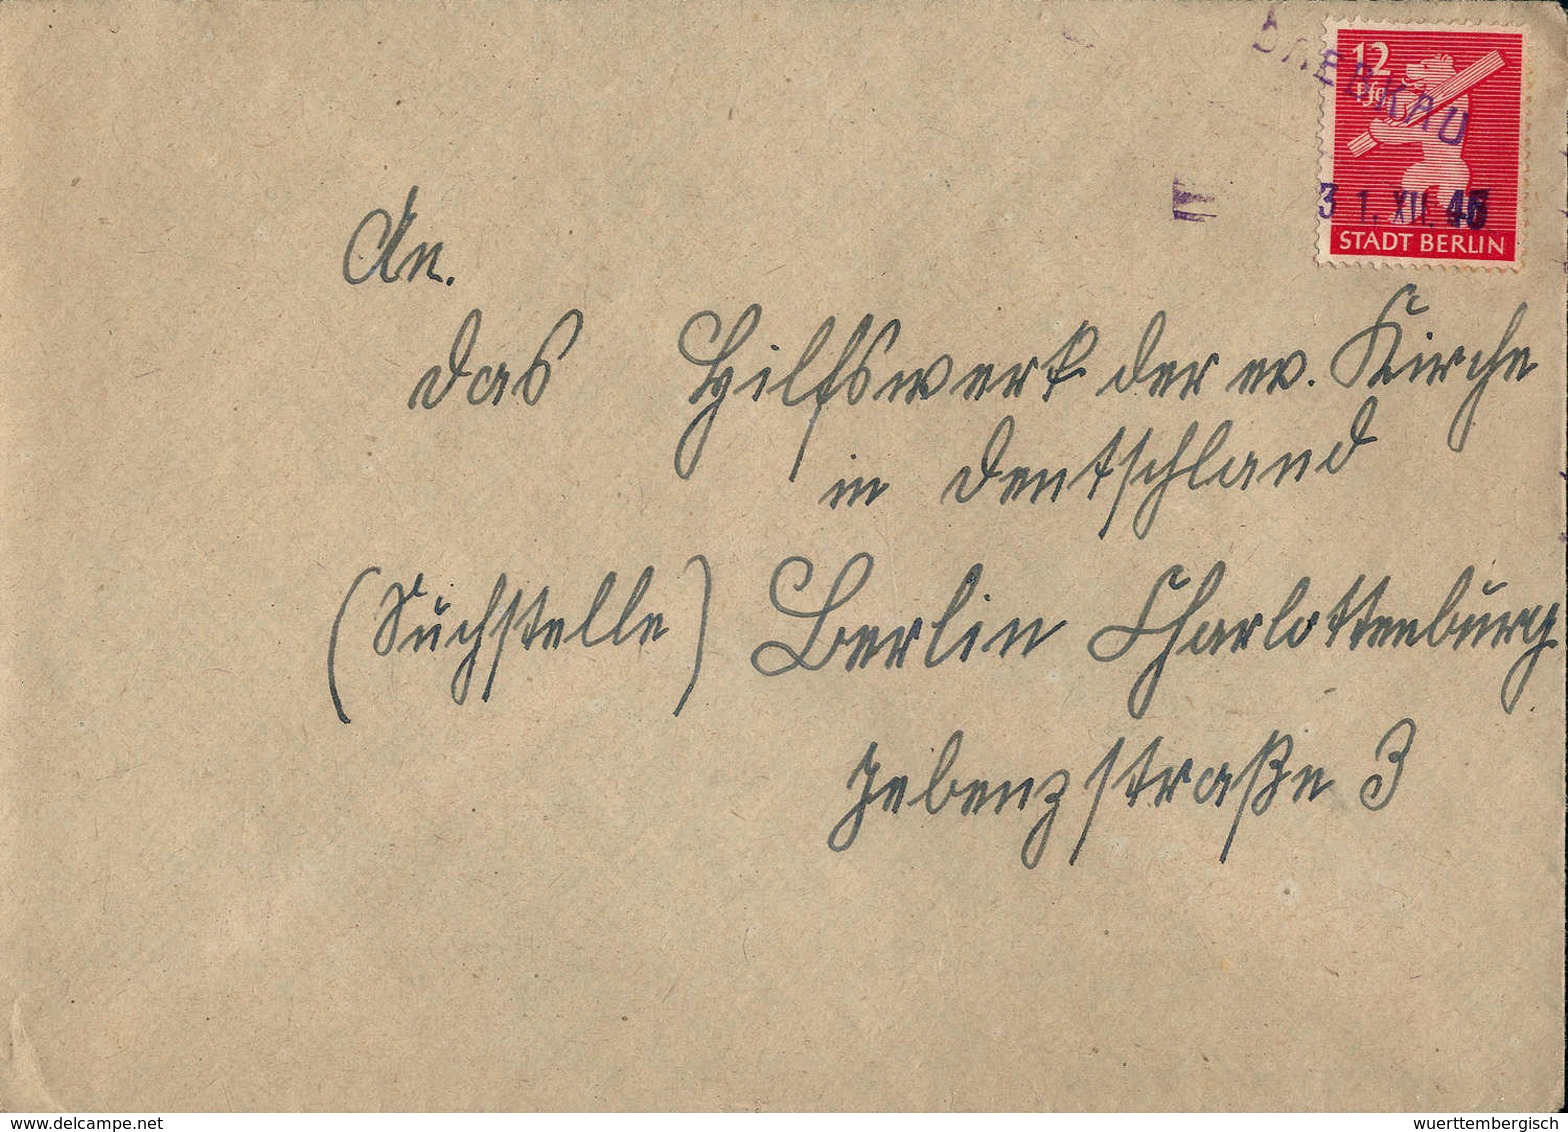 DREBKAU
12
Pfg
31. XII. 45
STADT BERLIN
An.
das Hilfswerk der ev. Kirche
in Deutschland
(Suchstelle) Berlin Charlottenburg
Jebenzstraße 3
delcampe.net
wuerttembergisch